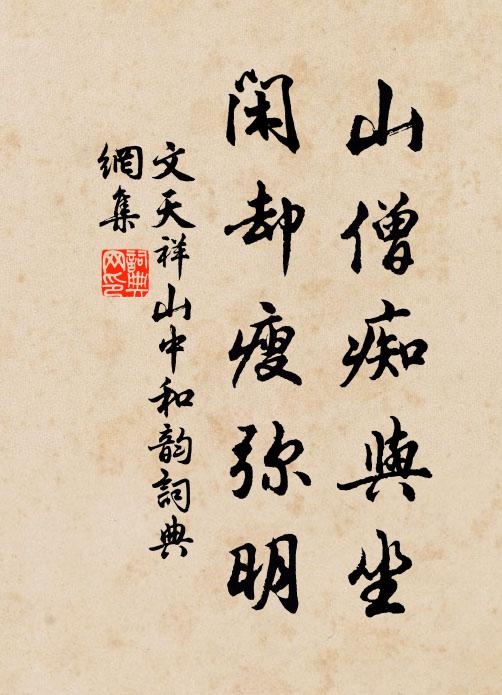 山僧痴與坐
閑却瘦弥明
文天祥山中和韵詞典
網集
詞典
网印